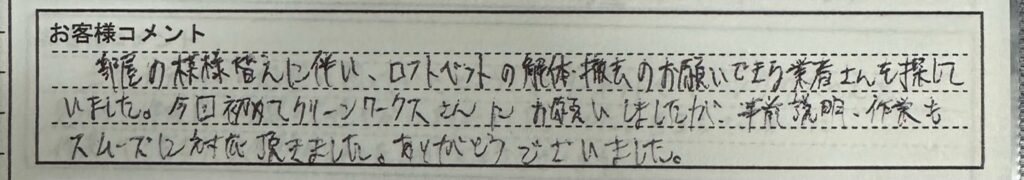 お客様コメント
部屋の模様替えに伴い、ロフトベットの解体・撤去のお願いできる業者さんを探して
いました。今回初めてクリーンワークスさんにお願いしましたが、事前説明、作業も
スムーズに対応頂きました。ありがとうございました。